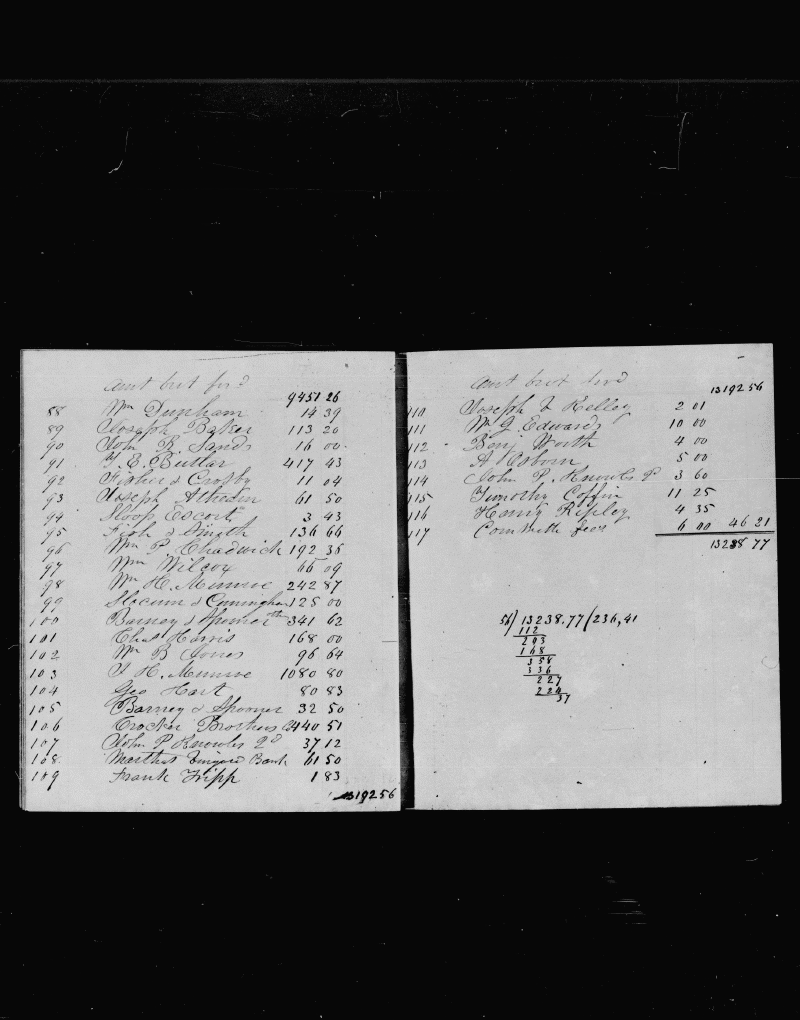 amt brt for'd 9451 26
88 Wm Dunham 14 39
89 Joseph Baker 113 20
90 John B Sands 16 00
91 T. E. Butlar 417 43
92 Fisher & Crosby 11 04
93 Joseph Athearn 61 50
94 Sloop Escort 3 43
95 Fish & Smith 136 66
96 Wm P. Chadwick 192 35
97 Wm Wilcox 66 09
98 Wm H. Munroe 242 87
99 Slocum & Cunningham 125 00
100 Barney & Spooner 341 62
101 Chas Harris 168 00
102 Wm B Jones 96 64
103 T H. Munroe 1080 80
104 Geo Hart 80 83
105 Barney & Spooner 32 50
106 Crocker Brothers 440 51
107 John P Knowles 2d 37 12
108 Marthas Vinyard Bank 61 50
109 Frank Tripp 1 83
1319256
amt brt ford 1319256
110 Joseph Kelley 2 01
111 Edwards 10 00
112 Benj Worth 4 00
113 A Osborn 5 00
114 John P. Knowles 2d 3 60
115 Timothy Coffin 11 25
116 Henry Ripley 4 35
117 fees 6 00 46 21
13238 77
56/13238.77/236,41
112
203
168
358
336
227
224
37